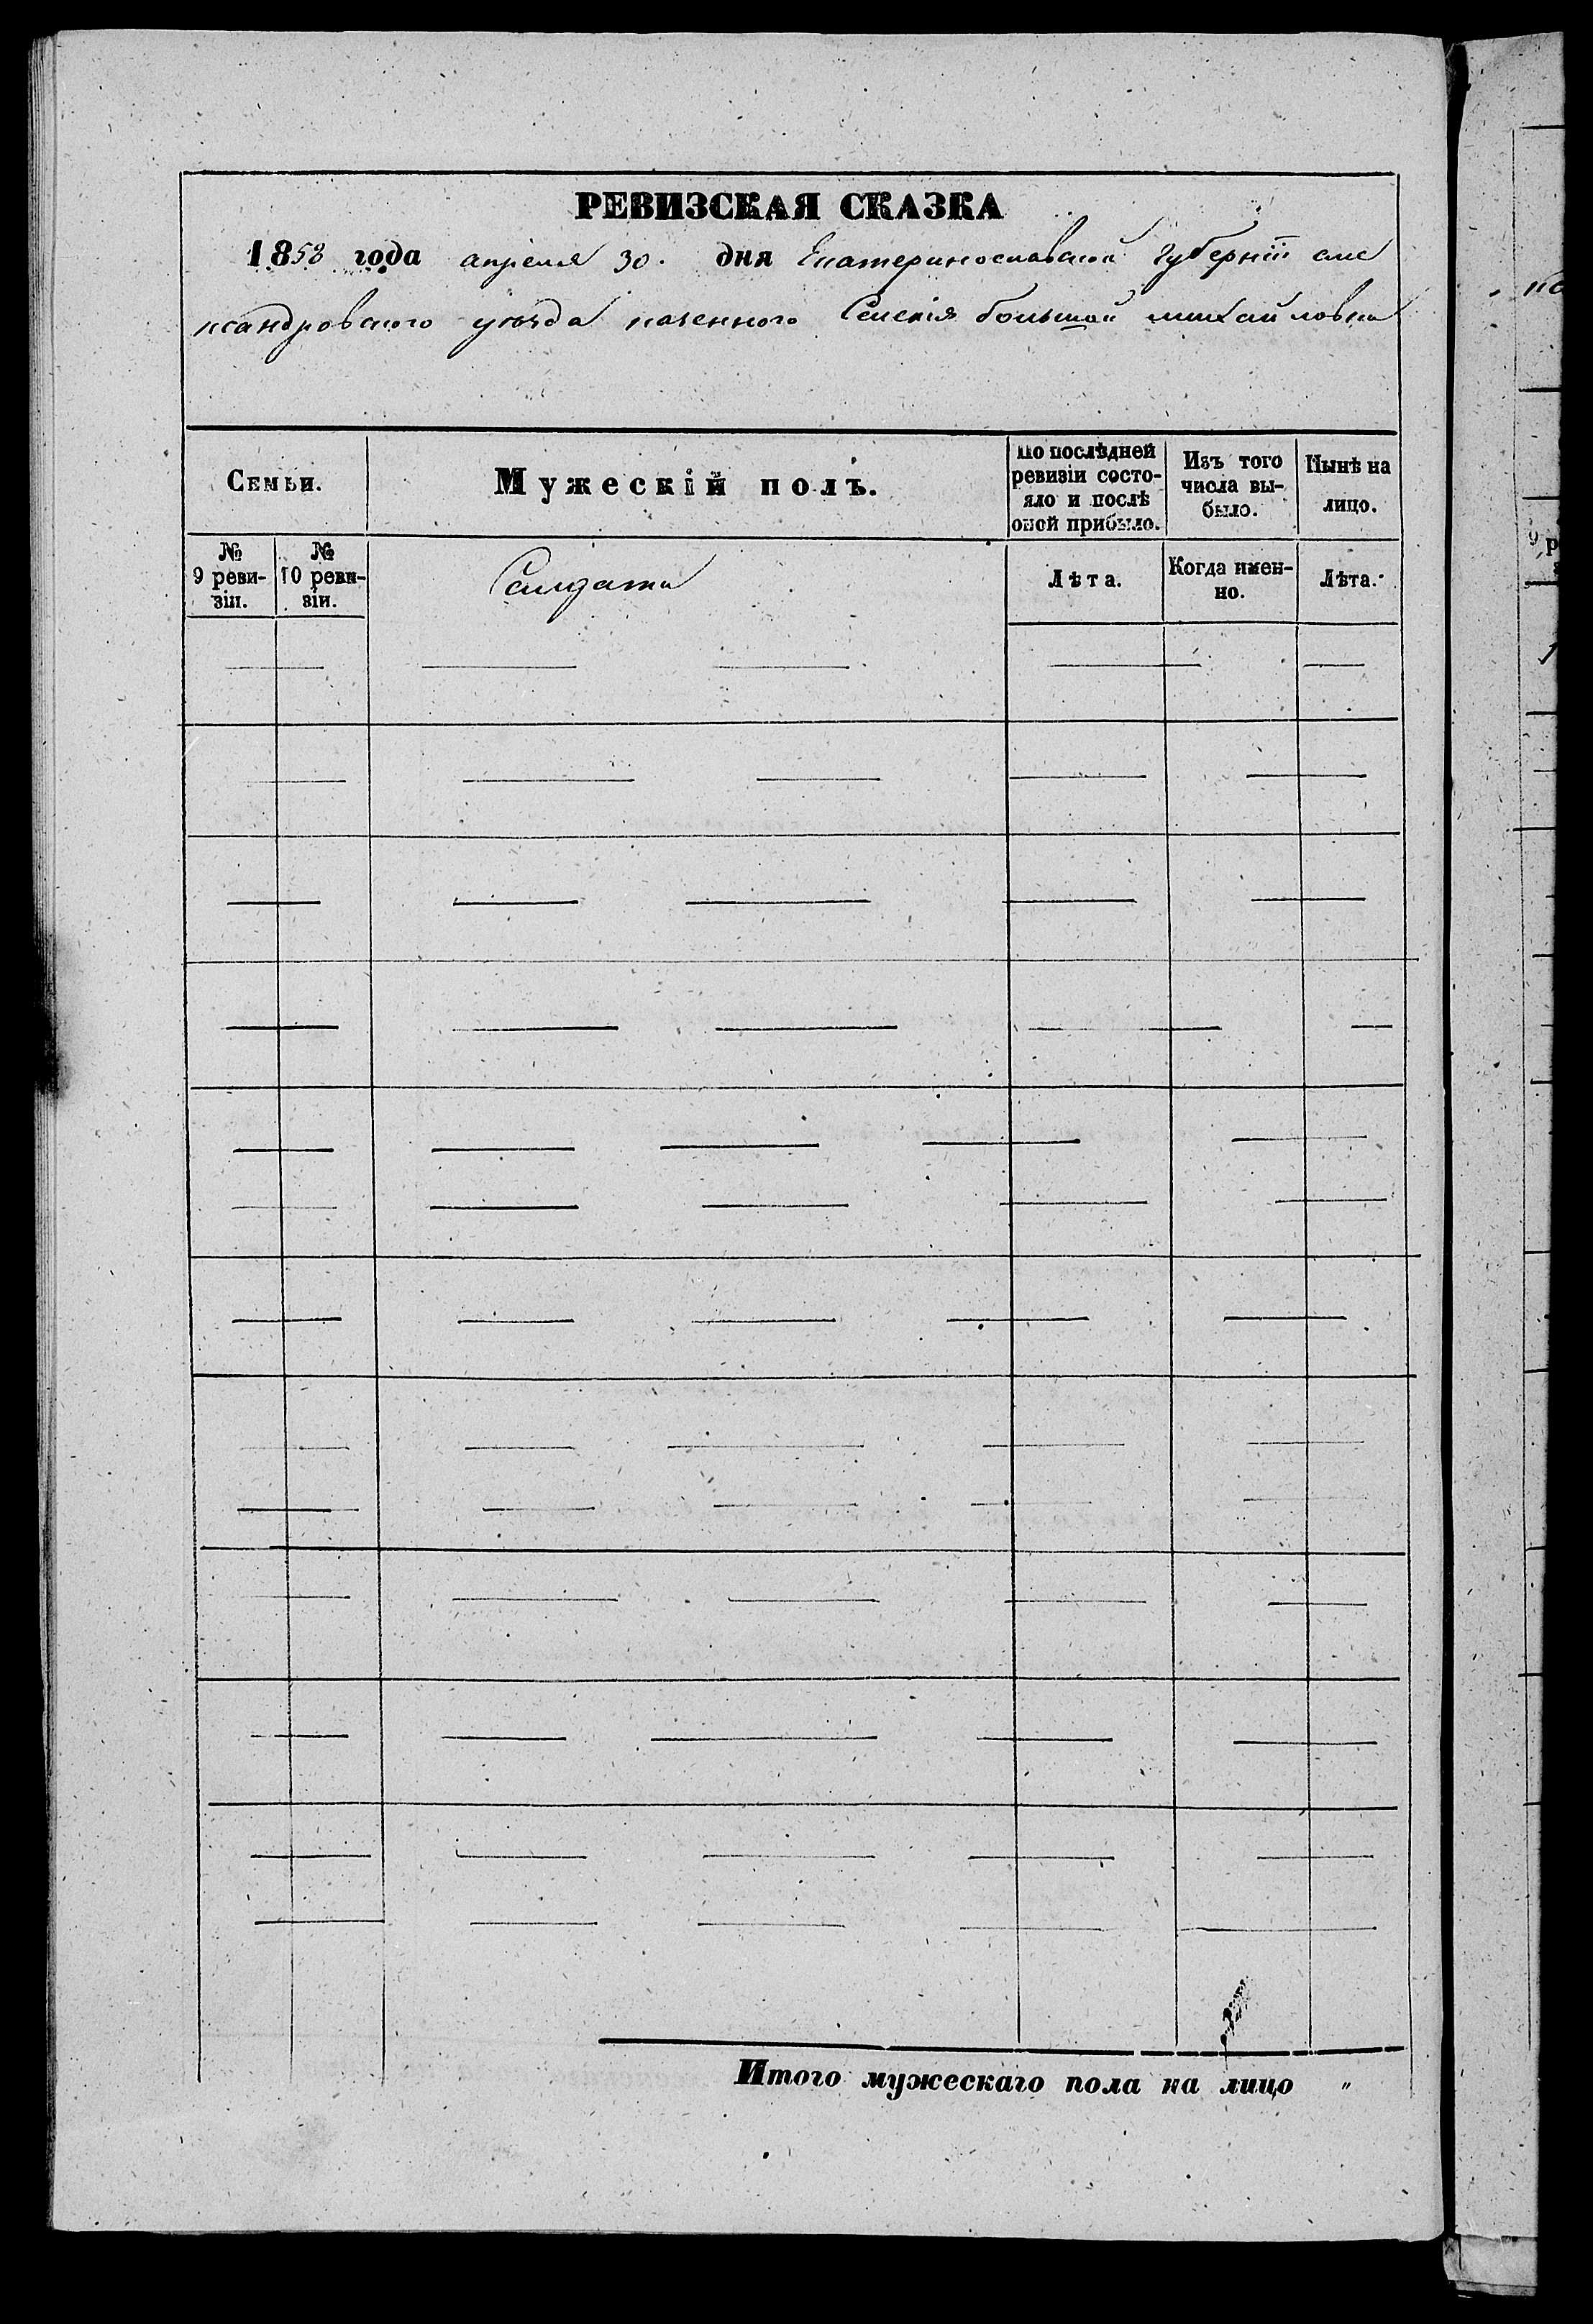 РЕВИЗСКАЯ СКАЗКА
1858 года апреля 30. дня Екатеринославской Губернiи але
ксандровского уезда казенного Селенiя большой михайловки
Семьи.
Мужескiй полъ.
По послѣдней
ревизiи состо-
яло и послѣ
оной прибыло.
Изъ того
числа вы-
было.
Нынѣ на
лицо.
№
9 реви-
зiи.
№
10 реви-
зiи.
Лѣта.
Когда имен-
но.
Лѣта.
Итого мужескаго пола на лицо "